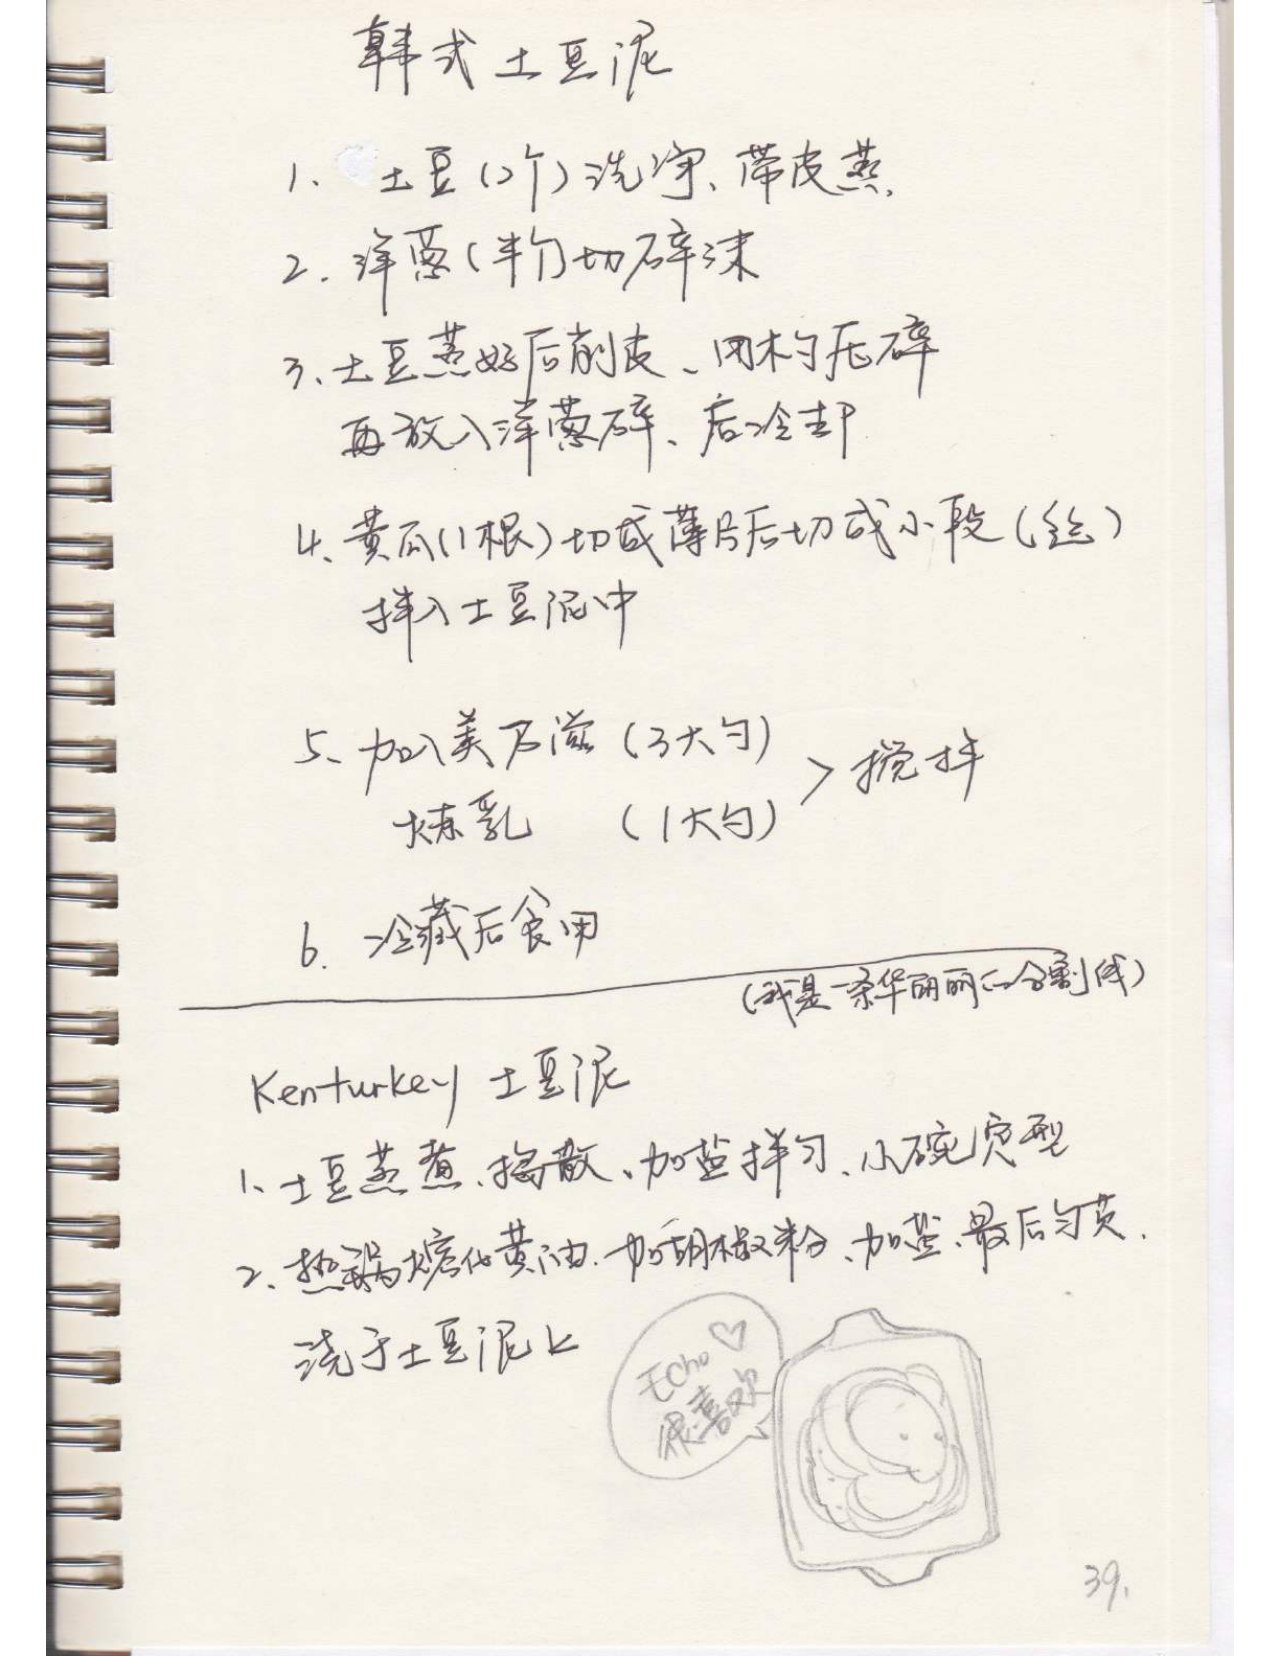 韩式土豆泥
1、土豆(2个)洗净、带皮蒸.
2. 洋葱(半个)切碎末
3、土豆蒸好后削皮、用木勺压碎
再放入洋葱碎、后冷却
4、黄瓜(1根)切成薄片后切成小段(丝)
拌入土豆泥中
5、加入美乃滋(3大勺)
炼乳 (1大勺) > 搅拌
6. 冷藏后食用
(我是一条华丽丽的分割线)
Kenturkey 土豆泥
1、土豆蒸煮、捣散、加盐拌匀、小碗定型
2、热锅熔化黄油.加胡椒粉、加盐、最后勾芡.
浇于土豆泥上
Echo♡
很喜欢
39.